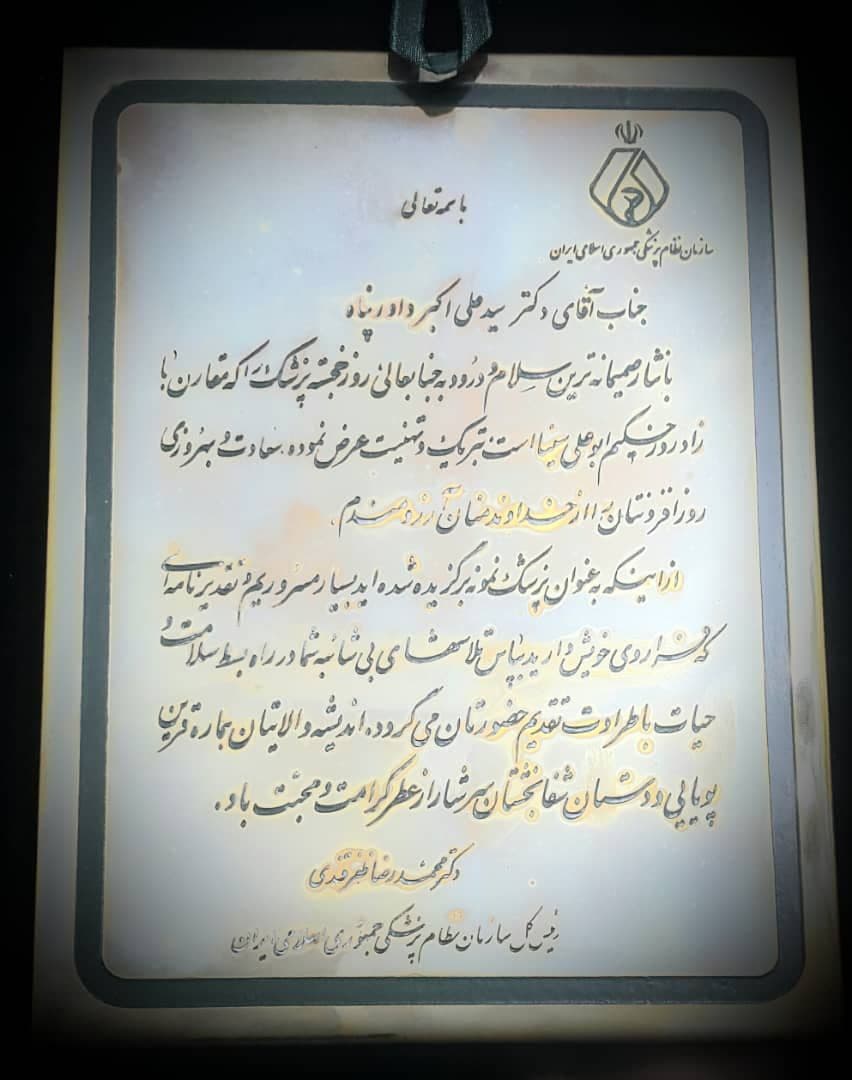 باسمه تعالی
سازمان نظام پزشکی جمهوری اسلامی ایران
جناب آقای دکتر سید علی اکبر داورپناه
با نثار صمیمانه ترین سلام و درود به جنابعالی روز خجسته پزشک را که مقارن با
زادروز حکیم ابوعلی سینا است تبریک و تهنیت عرض نموده، سعادت و بهروزی
روز افزونتان را از خداوند منان آرزومندم.
از اینکه به عنوان پزشک نمونه برگزیده شده اید بسیار مسروریم و تقدیرنامه ای
که فراروی خویش دارید بپاس تلاشهای بی شائبه شما در راه بسط سلامت و
حیات با طراوت تقدیم حضورتان می گردد. اندیشه والایتان هماره قرین
پویایی و دستان شفابخشتان سرشار از عطر کرامت و محبت باد.
دکتر محمدرضا ظفرقندی
رئیس کل سازمان نظام پزشکی جمهوری اسلامی ایران